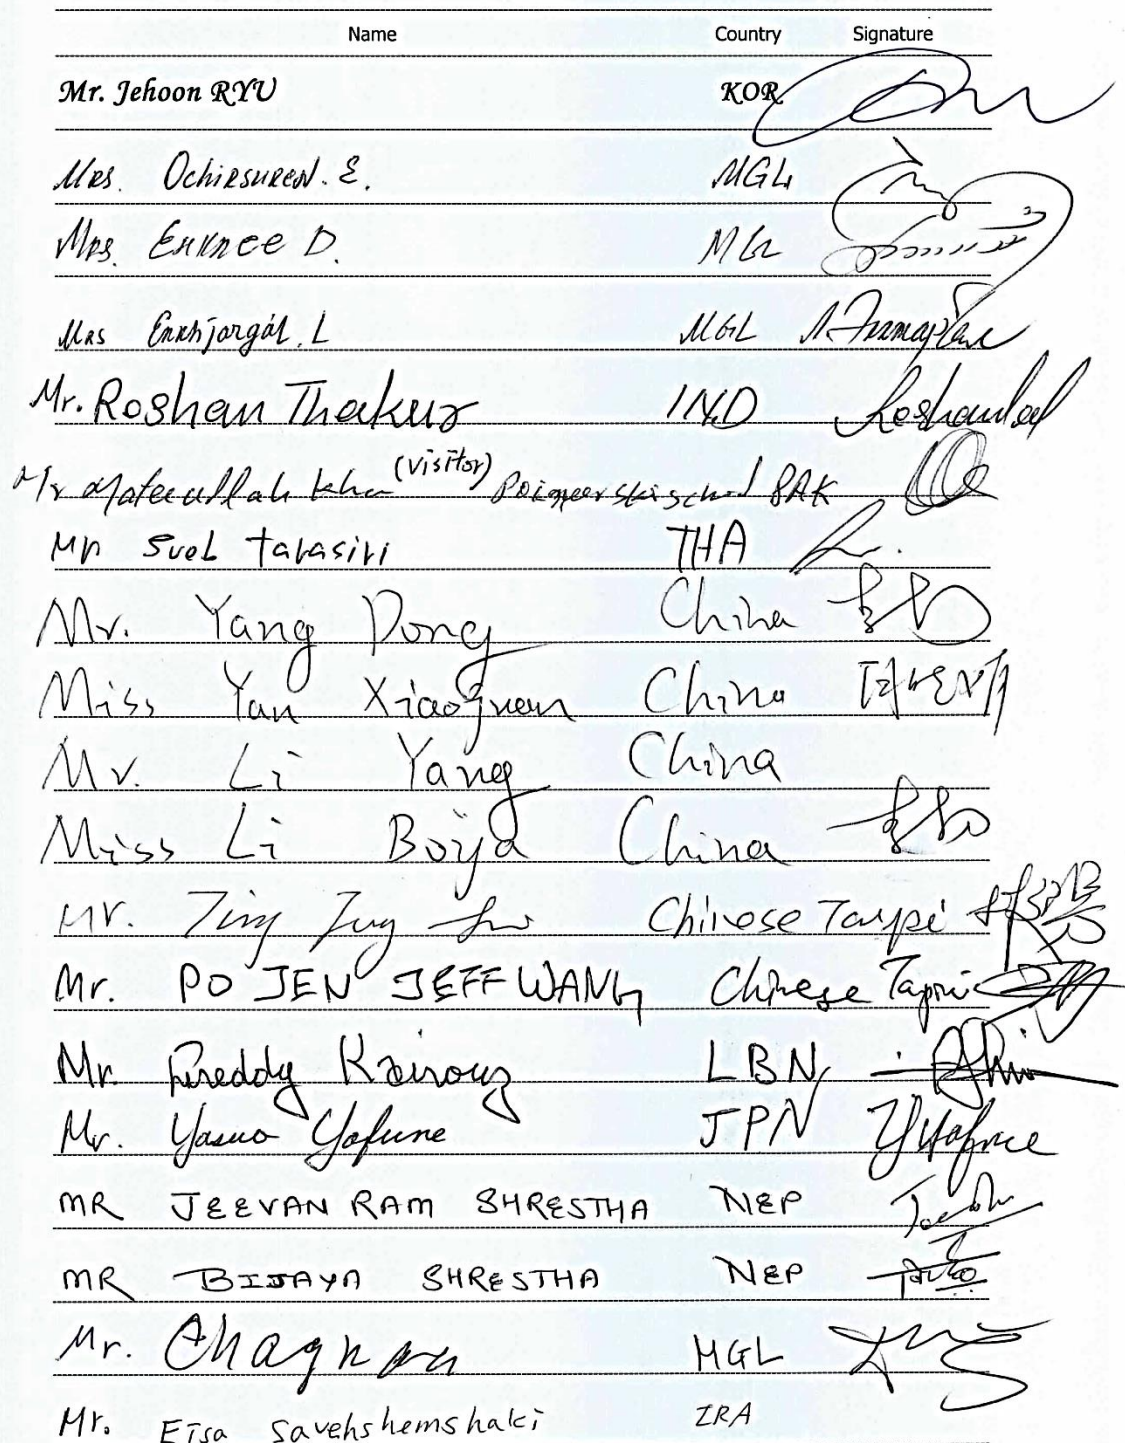 Name Country Signature
Mr. Jehoon RYU KOR
Mrs. Ochirsuren. E. MGL
Mrs. Enknee D. MGL
Mrs Enkhjargal. L MGL
Mr. Roshan Thakur IND Roshanlal
Mr Khan (visitor) ski school PAK
Mr Tarasiri THA
Mr. Yang Dong China
Miss Yan Xiaojuan China
Mr. Li Yang China
Miss Li Boya China
Mr. Ting Chinese Taypi
Mr. PO JEN JEFF WANG Chinese
Mr. Freddy Kairouz LBN
Mr. Yasuo Yafune JPN
MR JEEVAN RAM SHRESTHA NEP
MR BIJAYA SHRESTHA NEP
Mr. MGL
Mr. Eisa Savehshemshaki IRA